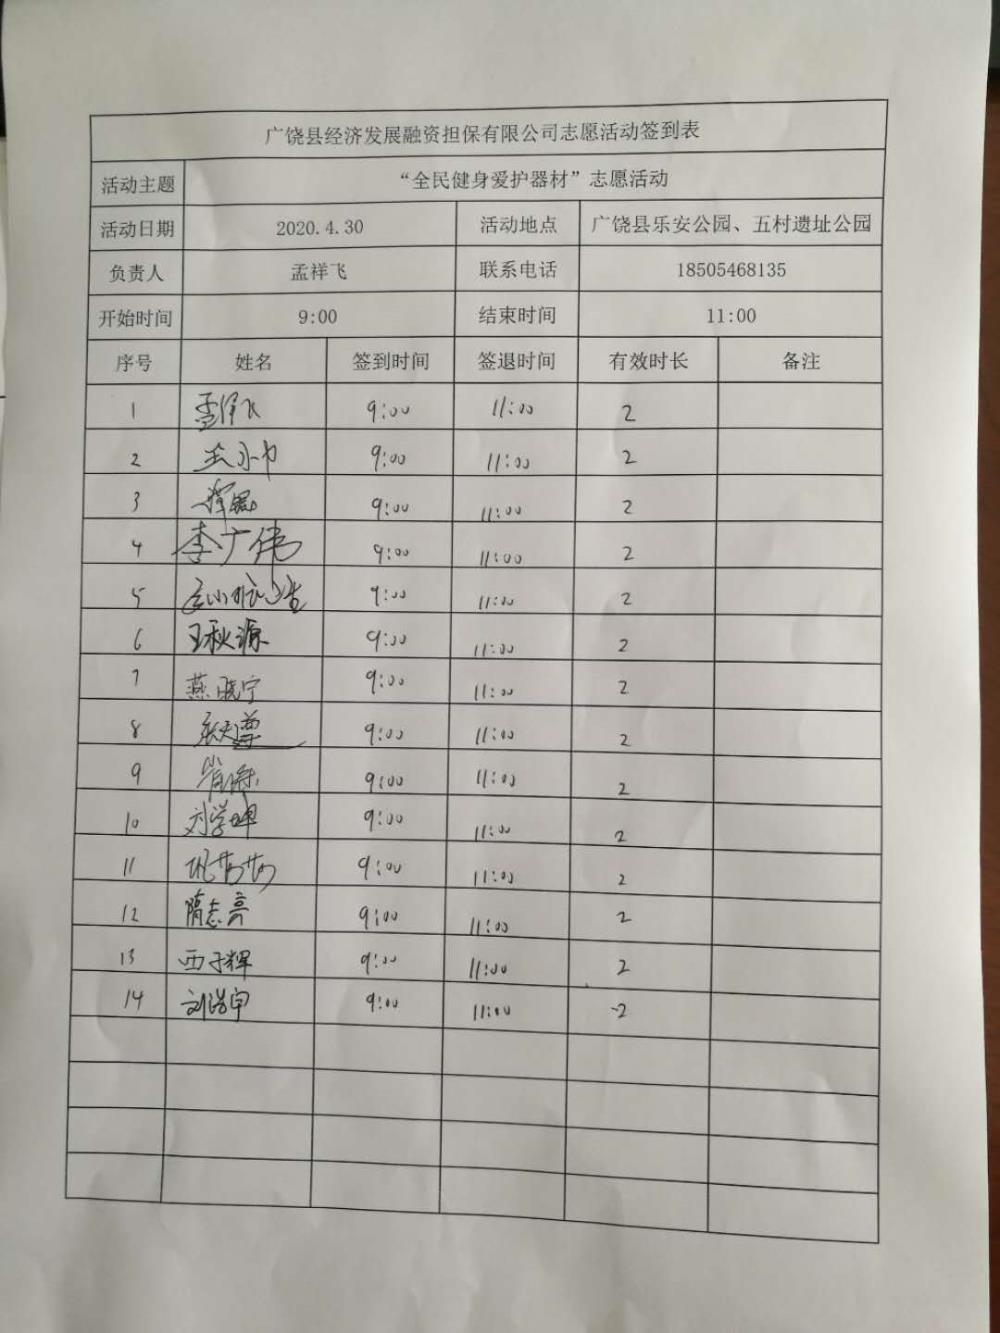 广饶县经济发展融资担保有限公司志愿活动签到表
活动主题 “全民健身爱护器材”志愿活动
活动日期 2020.4.30 活动地点 广饶县乐安公园、五村遗址公园
负责人 孟祥飞 联系电话 18505468135
开始时间 9:00 结束时间 11:00
序号 姓名 签到时间 签退时间 有效时长 备注
1 9:00 11:00 2
2 9:00 11:00 2
3 9:00 11:00 2
4 李广伟 9:00 11:00 2
5 9:00 11:00 2
6 王秋源 9:00 11:00 2
7 燕晓宁 9:00 11:00 2
8 9:00 11:00 2
9 9:00 11:00 2
10 刘学坤 9:00 11:00 2
11 9:00 11:00 2
12 隋志亮 9:00 11:00 2
13 西子辉 9:00 11:00 2
14 9:00 11:00 2